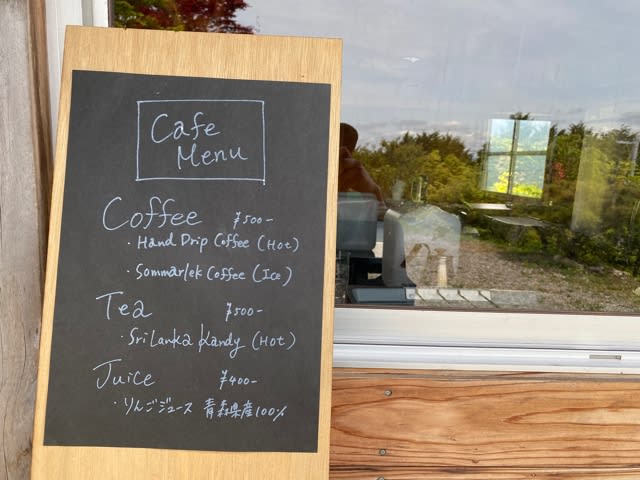 Cafe
Menu
Coffee ¥500-
・Hand Drip Coffee (Hot)
・Sommarlek Coffee (Ice)
Tea ¥500-
・Sri Lanka Kandy (Hot)
Juice ¥400-
・りんごジュース 青森県産100%